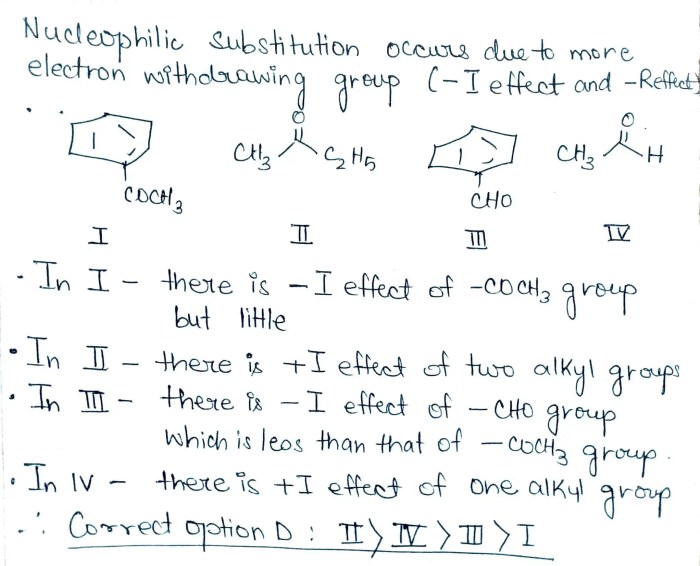 Nucleophilic substitution occurs due to more
electron withdrawing group (-I effect and -Reffect)
O O
CH3 C2H5 CH3 H
COCH3 CHO
I II III IV
· In I - there is -I effect of -COCH3 group
but little
· In II - there is +I effect of two alkyl groups
· In III - there is -I effect of -CHO group
which is less than that of -COCH3 group.
· In IV - there is +I effect of one alkyl group
∴ Correct option D : II > IV > III > I